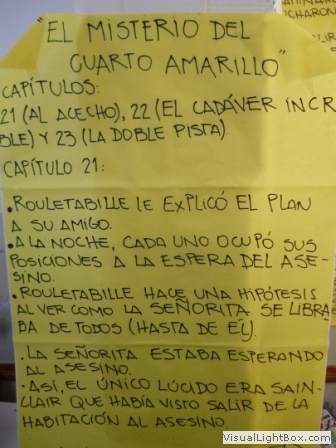 "EL MISTERIO DEL
CUARTO AMARILLO"
CAPÍTULOS:
21 (AL ACECHO), 22 (EL CADÁVER INCR
BLE) Y 23 (LA DOBLE PISTA)
CAPÍTULO 21:
• ROULETABILLE lE EXPLICÓ EL PLAN
A SU AMIGO.
• A LA NOCHE, CADA UNO OCUPÓ SUS
POSICIONES A LA ESPERA DEL ASE-
SINO.
• ROULETABILLE HACE UNA HIPÓTESIS
AL VER COMO LA SEÑORITA SE LIBRA
BA DE TODOS (HASTA DE ÉL).
• LA SEÑORITA ESTABA ESPERANDO
AL ASESINO.
• ASÍ, EL ÚNICO LÚCIDO ERA SAIN-
CLAIR QUE HABÍA VISTO SALIR DE LA
HABITACIÓN AL ASESINO
VisualLightBox.com